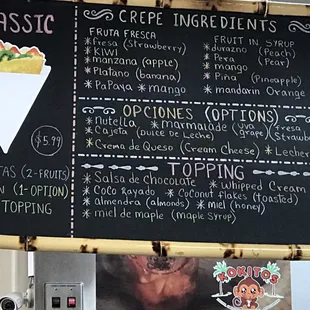 ASSIC
$5.99
TAS (2-FRUITS
N (1-OPTION)
TOPPING
CREPE INGREDIENTS
FRUTA FRESCA
*fresa (Strawberry)
*KIWI
*manzana (apple)
*Platano (banana)
*PaPaya *mango
FRUIT IN SYRUP
*durazno (Peach)
*Pera (Pear)
*mango
*Piña (Pineapple)
*mandarin Orange
OPCIONES (OPTIONS)
*Nutella *marmalade (uva grape) (fresa Strawbe
*Cajeta (Dulce de Leche)
*Crema de Queso (Cream Cheese) *Lecher
TOPPING
*Salsa de Chocolate *Whipped Cream
*Coco Rayado *Coconut flakes (toasted)
*almendra (almonds) *miel (honey)
*miel de maple (maple Syrup)
KOKITOS